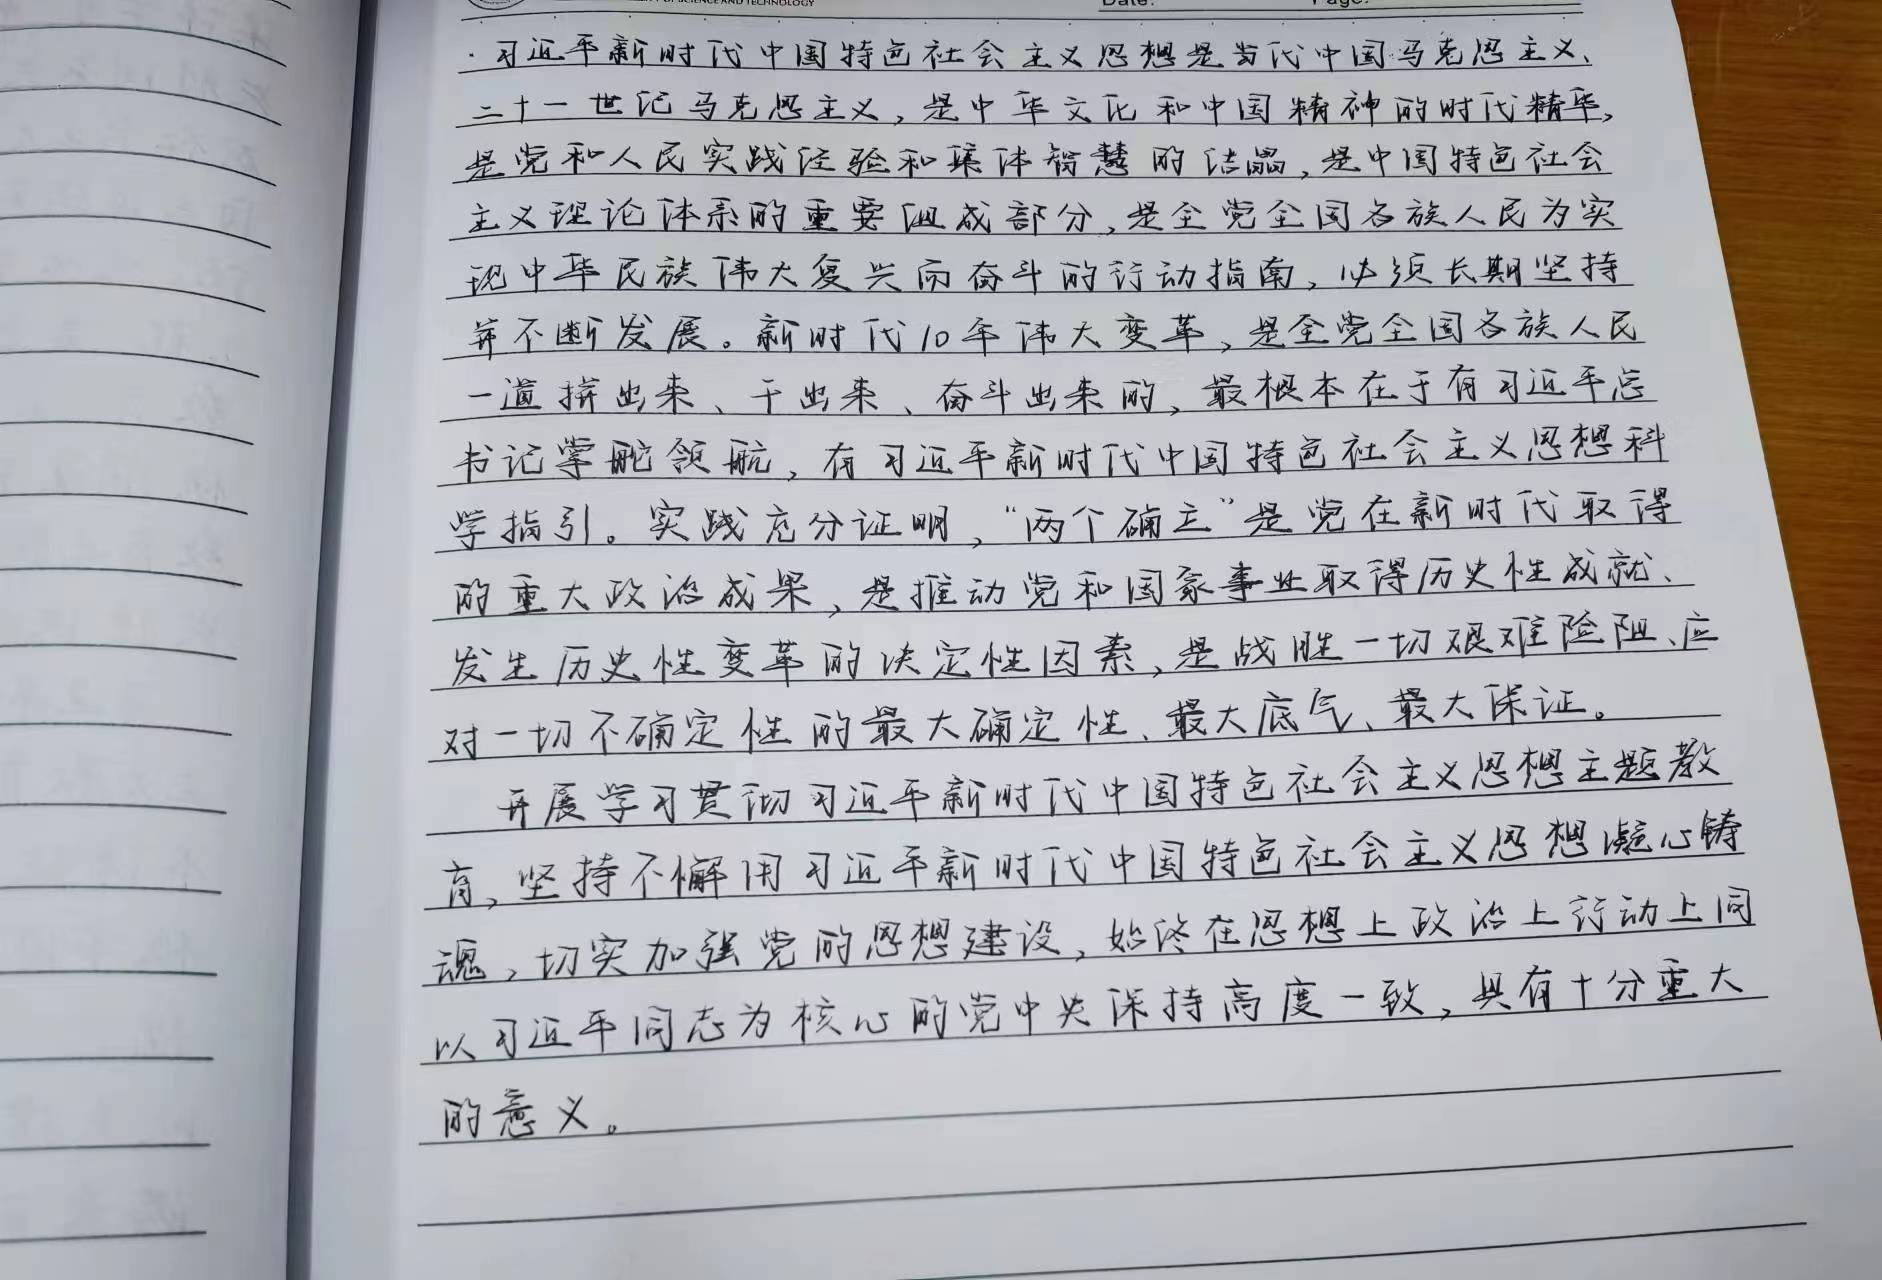 OF SCIENCE AND TECHNOLOGY Date: Page:
·习近平新时代中国特色社会主义思想是当代中国马克思主义、
二十一世纪马克思主义，是中华文化和中国精神的时代精华，
是党和人民实践经验和集体智慧的结晶，是中国特色社会
主义理论体系的重要组成部分，是全党全国各族人民为实
现中华民族伟大复兴而奋斗的行动指南，必须长期坚持
并不断发展。新时代10年伟大变革，是全党全国各族人民
一道拼出来、干出来、奋斗出来的，最根本在于有习近平总
书记掌舵领航，有习近平新时代中国特色社会主义思想科
学指引。实践充分证明，“两个确立”是党在新时代取得
的重大政治成果，是推动党和国家事业取得历史性成就、
发生历史性变革的决定性因素，是战胜一切艰难险阻、应
对一切不确定性的最大确定性、最大底气、最大保证。
开展学习贯彻习近平新时代中国特色社会主义思想主题教
育，坚持不懈用习近平新时代中国特色社会主义思想凝心铸
魂，切实加强党的思想建设，始终在思想上政治上行动上同
以习近平同志为核心的党中央保持高度一致，具有十分重大
的意义。